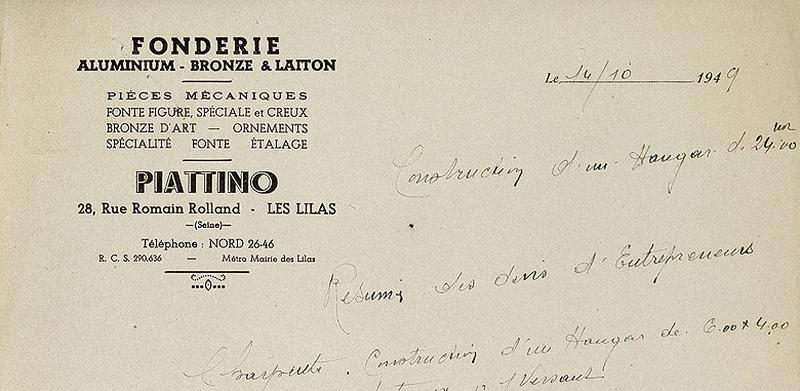 FONDERIE
ALUMINIUM - BRONZE & LAITON
PIÉCES MÉCANIQUES
FONTE FIGURE, SPÉCIALE et CREUX
BRONZE D'ART — ORNEMENTS
SPÉCIALITÉ FONTE ÉTALAGE
PIATTINO
28, Rue Romain Rolland - LES LILAS
—(Seine)—
Téléphone : NORD 26-46
R. C. S. 290.636 — Métro Mairie des Lilas
Le 14/10 1949
Construction d'un Hangar de 24.00
Resumé des devis d'Entrepreneurs
Charpente. Construction d'un Hangar de 6.00 x 4.00
1 Versant